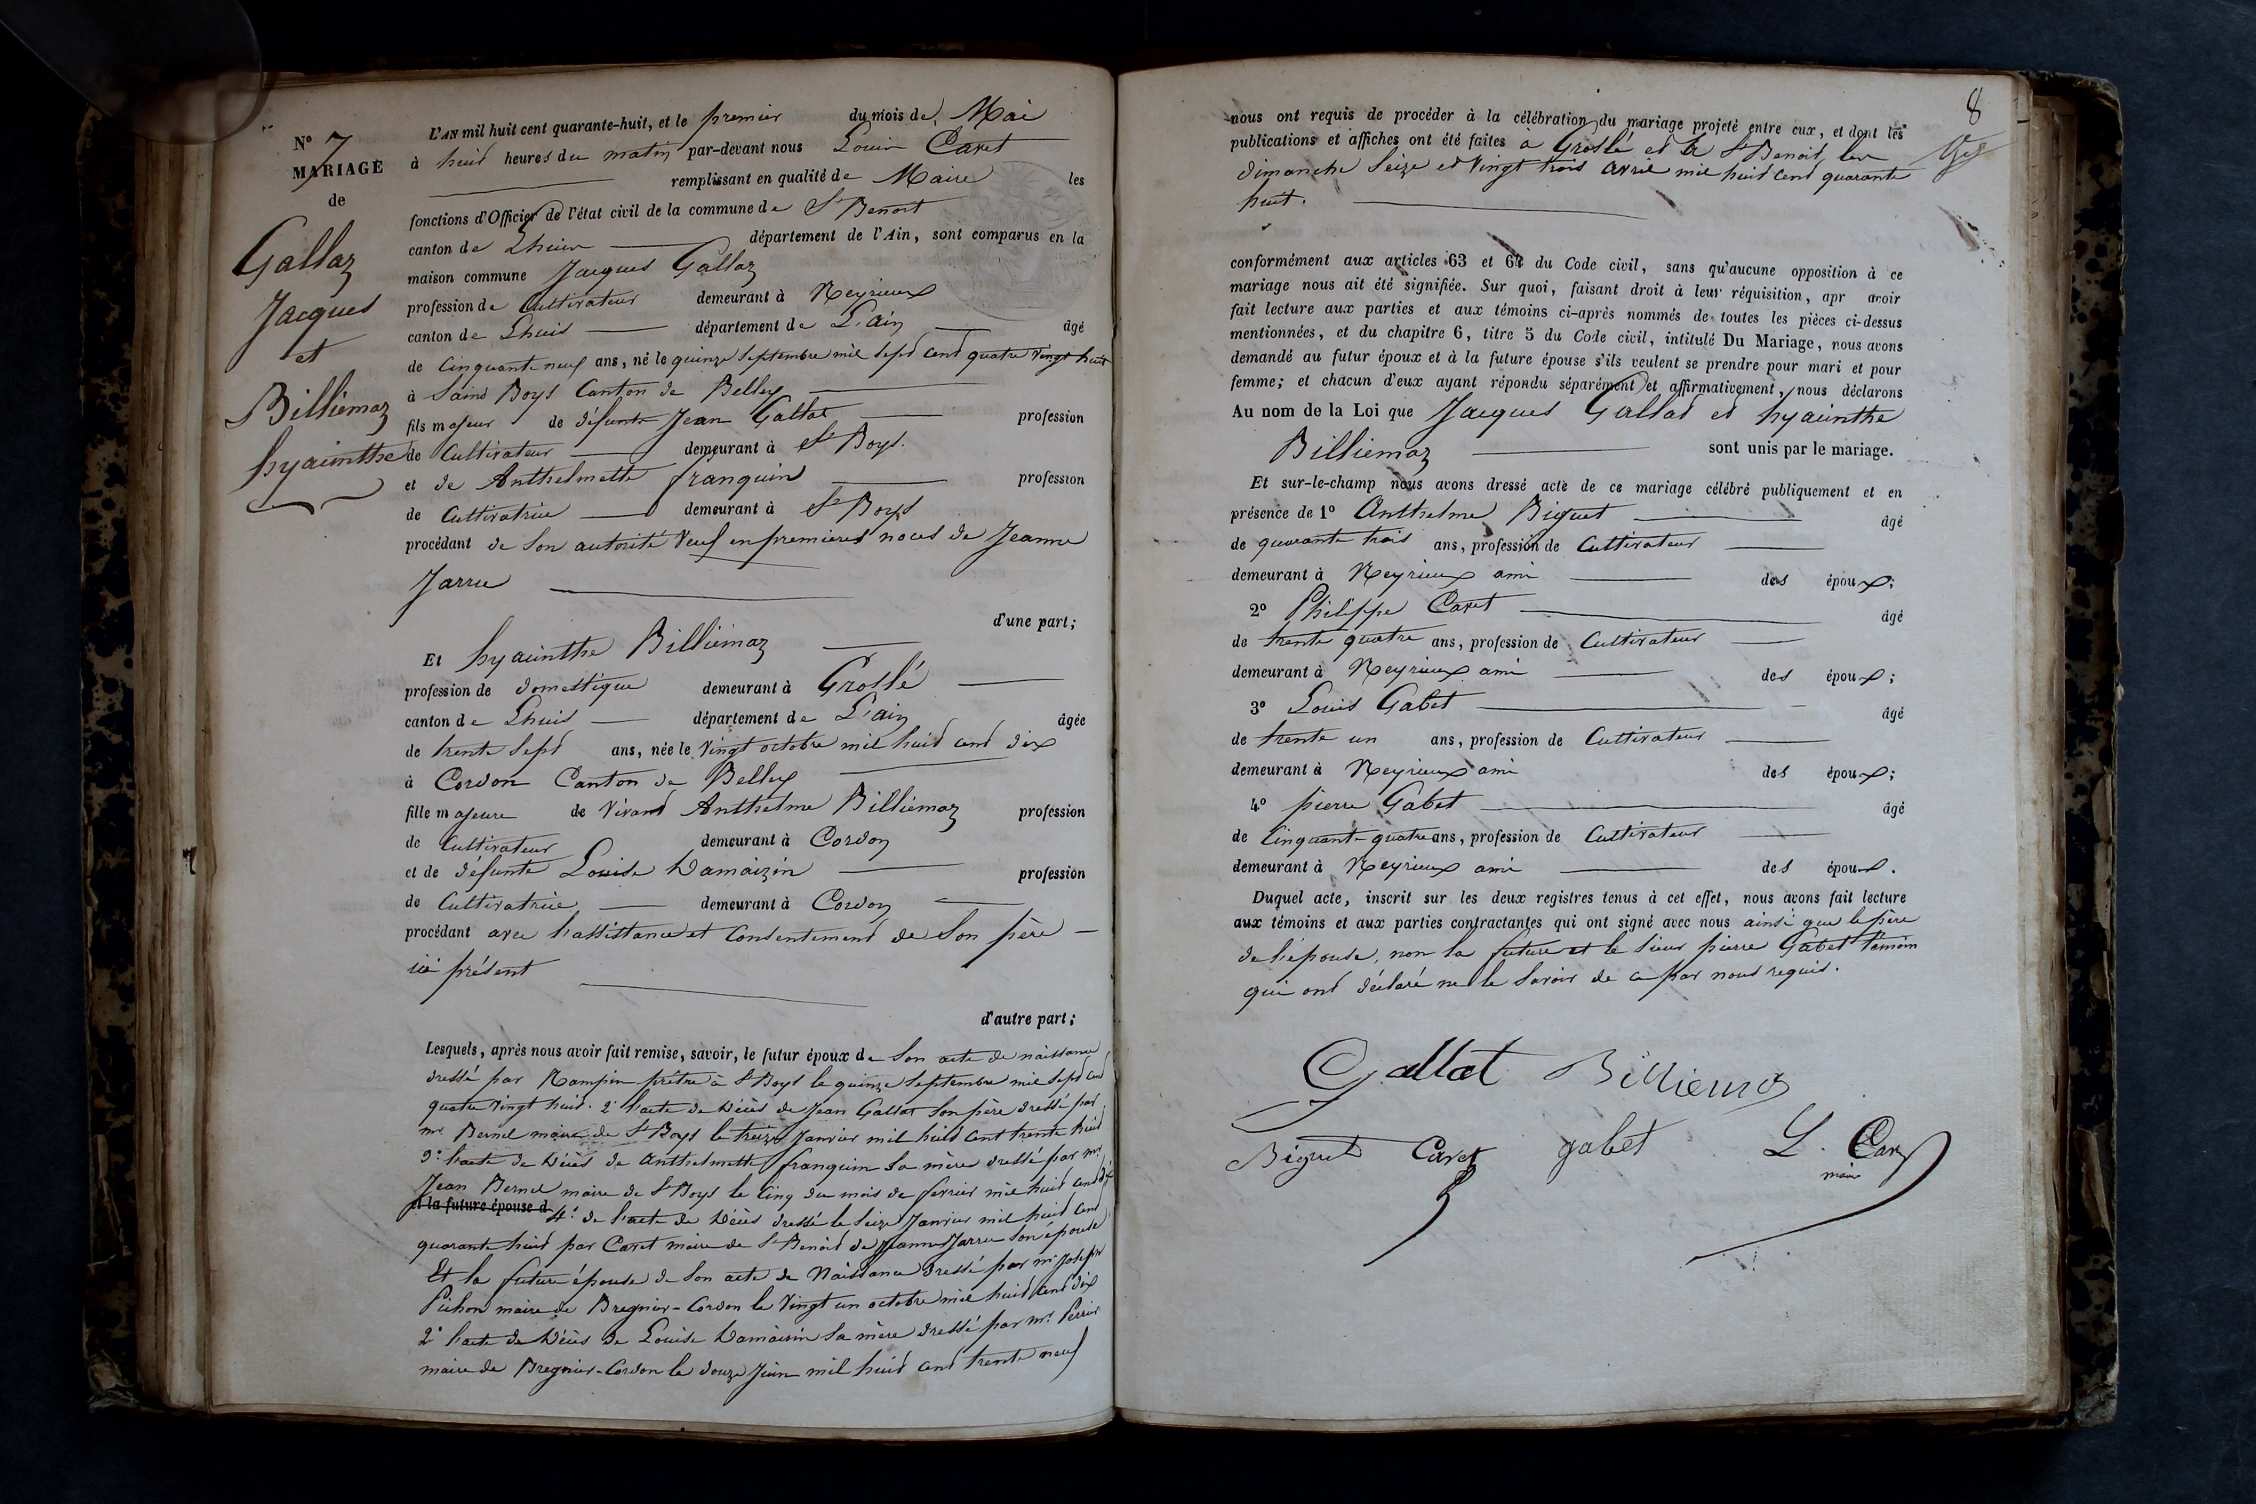 N° 7
MARIAGE
de
Gallaz
Jacques
et
Billiémaz
hyacinthe
L'AN mil huit cent quarante-huit, et le premier du mois de Mai
à huit heures du matin par-devant nous Louis Caret
remplissant en qualité de Maire les
fonctions d'Officier de l'état civil de la commune de St Benoit
canton de Lhuis département de l'Ain, sont comparus en la
maison commune Jacques Gallaz
profession de Cultivateur demeurant à Neyrieux
canton de Lhuis département de L'ain âgé
de Cinquante neuf ans, né le quinze Septembre mil Sept cent quatre vingt huit
à Saint Boys Canton de Belley
fils majeur de défunte Jean Gallat profession
de Cultivateur demeurant à St Boys.
et de Anthelmette franquin profession
de Cultivatrice demeurant à St Boys
procédant de Son autorité Veuf en premieres noces de Jeanne
Jarru
d'une part;
Et hyacinthe Billiémaz
profession de domestique demeurant à Groslé
canton de Lhuis département de L'ain âgée
de trente Sept ans, née le Vingt octobre mil huit cent dix
à Cordon Canton de Belley
fille majeure de Vivant Anthelme Billiémaz profession
de Cultivateur demeurant à Cordon
et de défunte Louise Damaizin profession
de Cultivatrice demeurant à Cordon
procédant avec l'assistance et Consentement de Son père
ici présent
d'autre part;
Lesquels, après nous avoir fait remise, savoir, le futur époux de Son acte de naissance
dressé par Rampin prêtre à St Boys le quinze Septembre mil Sept cent
quatre vingt huit. 2° l'acte de décès de Jean Gallat Son père dressé par
mr Bernel maire de St Boys le treize Janvier mil huit cent trente huit
3° l'acte de décès de Anthelmette franquin Sa mère dressé par mr
Jean Bernel maire de St Boys le Cinq du mois de fevrier mil huit cent dix
et la future épouse d 4° de l'acte de décès dressé le Seize Janvier mil huit cent
quarante huit par Caret maire de St Benoit de Jeanne Jarru Son épouse
Et la future épouse de Son acte de Naissance dressé par mr Joseph
Pichon maire de Bregnier-Cordon le Vingt un octobre mil huit cent dix
2° l'acte de décès de Louise Damaisin Sa mère dressé par mr Perrin
maire de Bregnier-Cordon le douze Juin mil huit cent trente neuf
8
nous ont requis de procéder à la célébration du mariage projeté entre eux, et dont les
publications et affiches ont été faites à Groslé et à St Benoit les
dimanche Seize et Vingt trois avril mil huit cent quarante
huit.
conformément aux articles 63 et 64 du Code civil, sans qu'aucune opposition à ce
mariage nous ait été signifiée. Sur quoi, faisant droit à leur réquisition, apr avoir
fait lecture aux parties et aux témoins ci-après nommés de toutes les pièces ci-dessus
mentionnées, et du chapitre 6, titre 5 du Code civil, intitulé Du Mariage, nous avons
demandé au futur époux et à la future épouse s'ils veulent se prendre pour mari et pour
femme; et chacun d'eux ayant répondu séparément et affirmativement, nous déclarons
Au nom de la Loi que Jacques Gallat et hyacinthe
Billiemaz sont unis par le mariage.
Et sur-le-champ nous avons dressé acte de ce mariage célébré publiquement et en
présence de 1° Anthelme Biguet âgé
de quarante trois ans, profession de Cultivateur
demeurant à Neyrieux ami des époux;
2° Philippe Caret âgé
de trente quatre ans, profession de Cultivateur
demeurant à Neyrieux ami des époux;
3° Louis Gabet âgé
de trente un ans, profession de Cultivateur
demeurant à Neyrieux ami des époux;
4° pierre Gabet âgé
de Cinquante quatre ans, profession de Cultivateur
demeurant à Neyrieux ami des époux.
Duquel acte, inscrit sur les deux registres tenus à cet effet, nous avons fait lecture
aux témoins et aux parties contractantes qui ont signé avec nous ainsi que le père
de l'épouse, non la future et le Sieur pierre Gabet témoin
qui ont déclaré ne le Savoir de ce par nous requis.
Gallat Billiemaz
Biguet Caret gabet L. Caret
maire